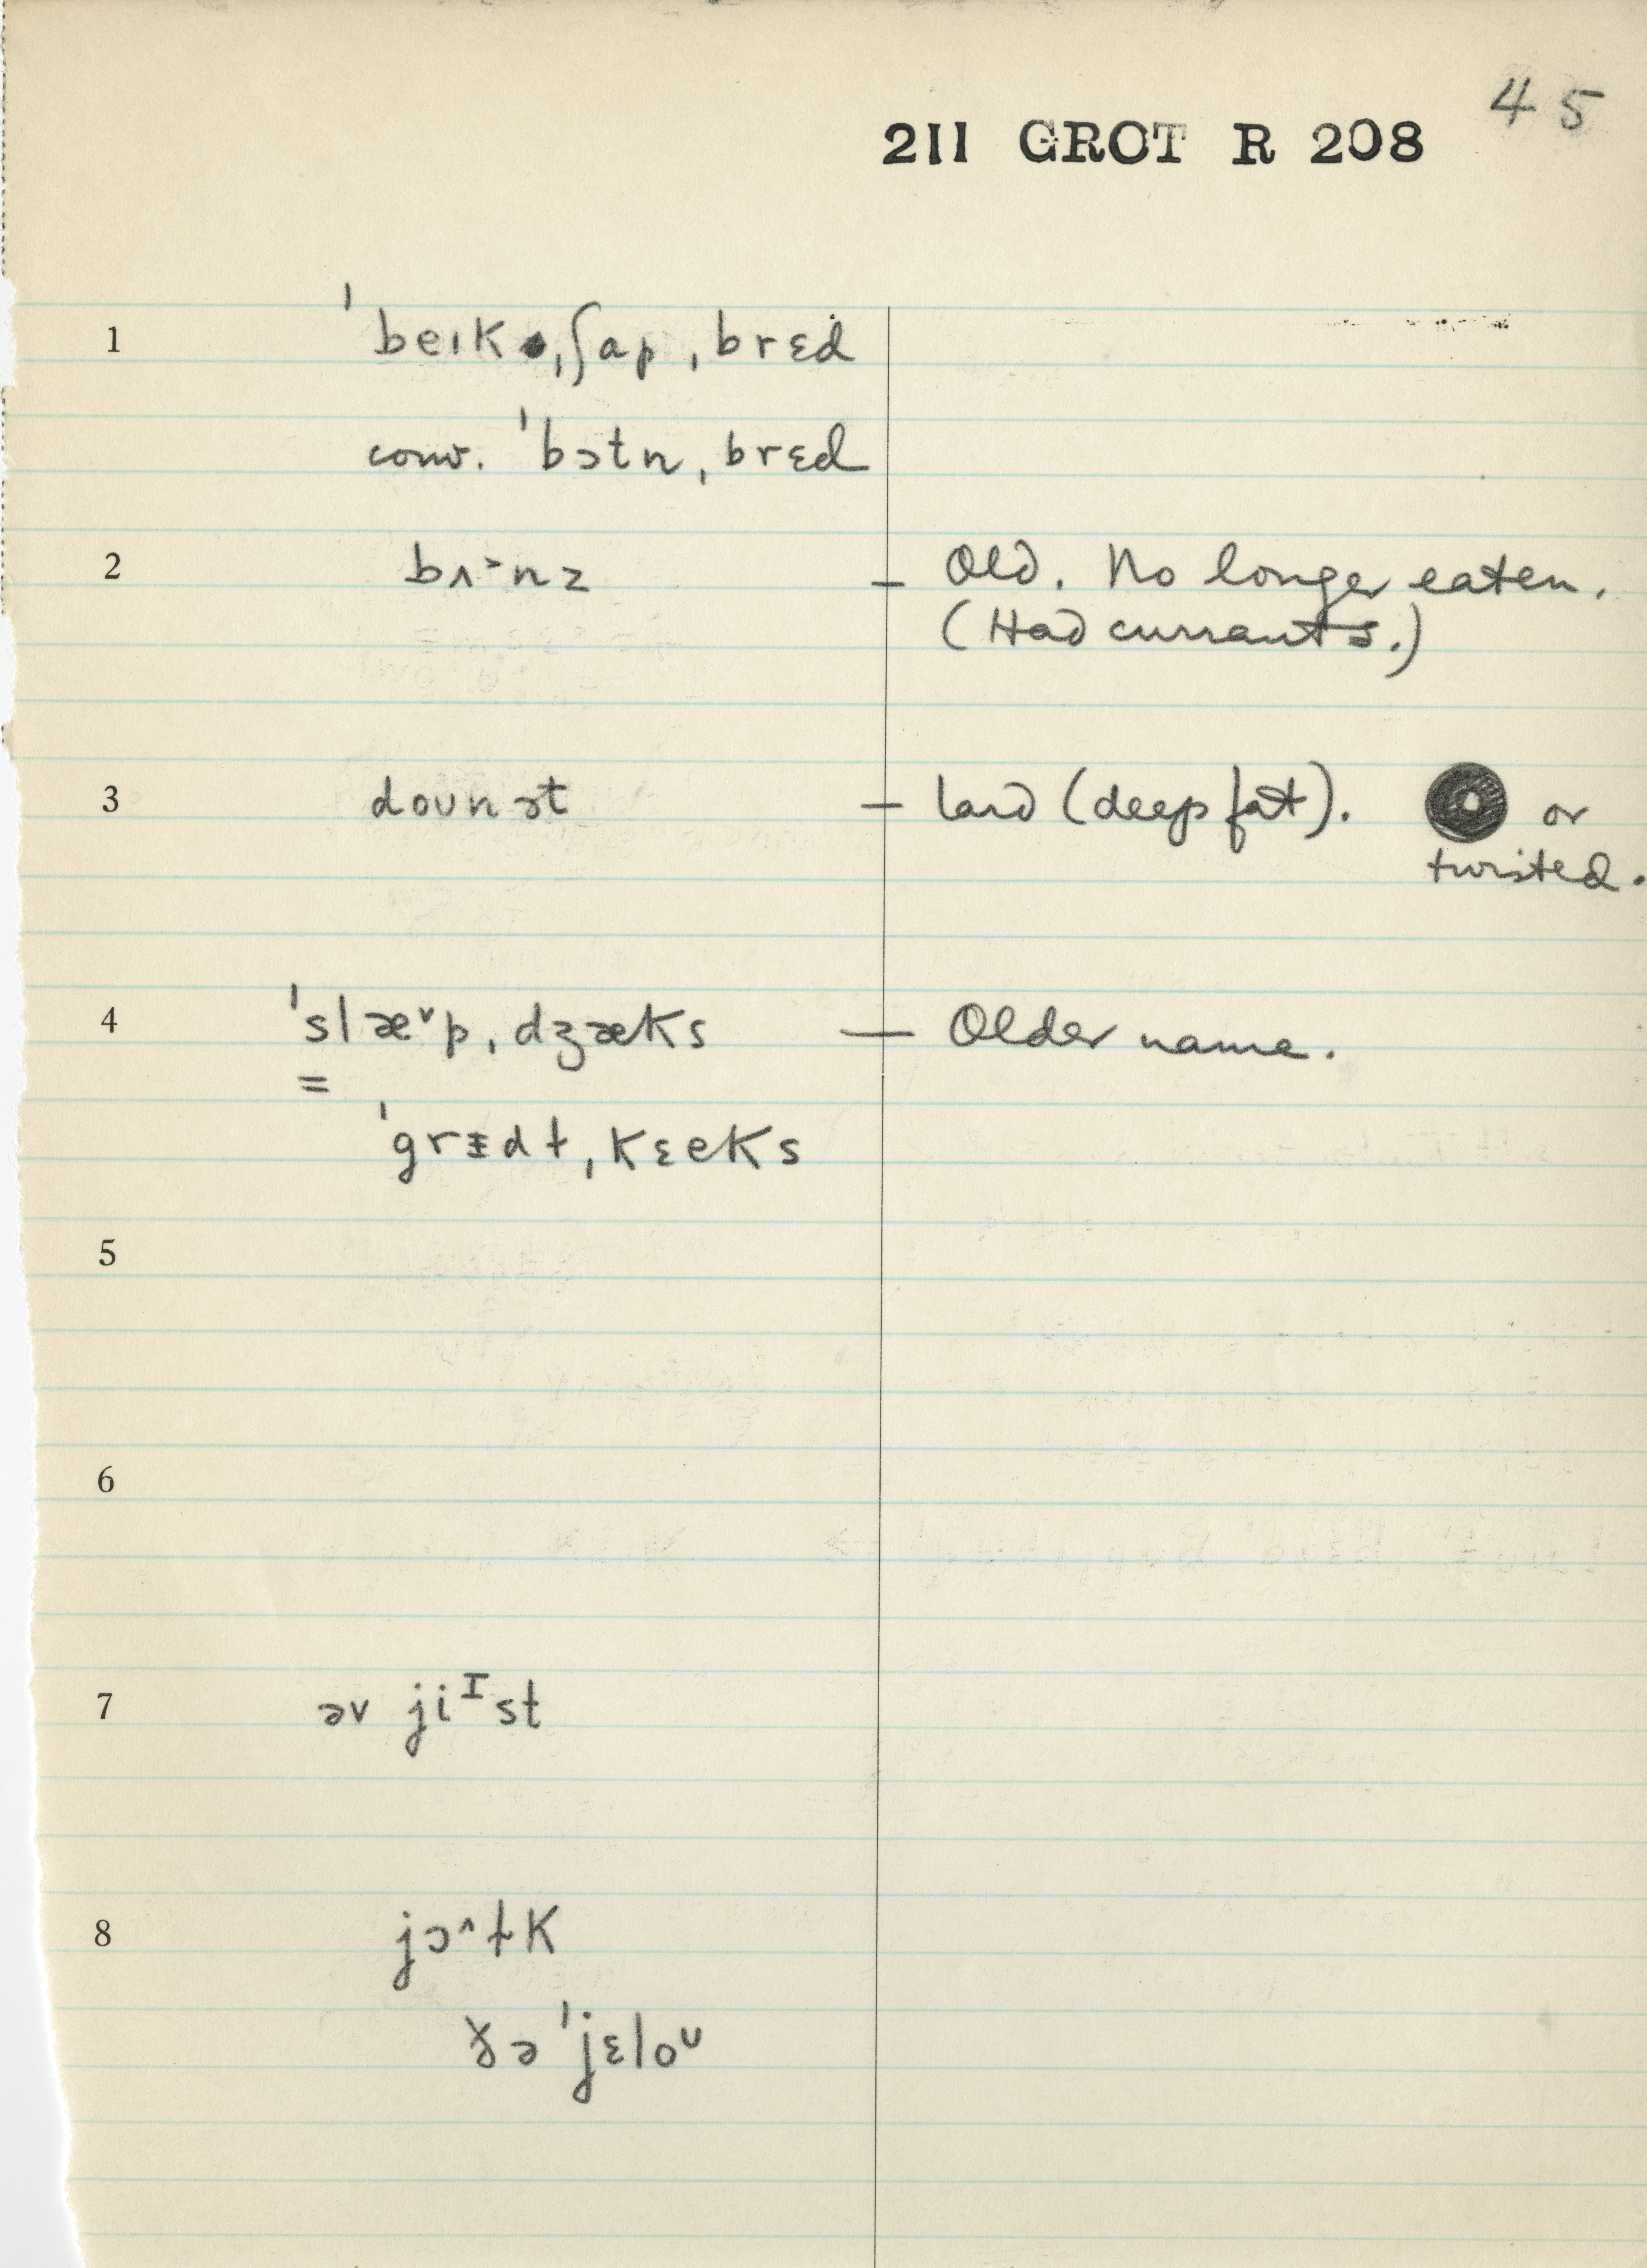 45
211 GROT R 208
1 ˈbeɪk ˌʃap ˌbrɛd
conv. ˈbɔtn ˌbrɛd
2 bʌ˃nz — Old. No longer eaten.
(Had currants.)
3 doʊnət — lard (deep fat). or
twisted.
4 ˈslæ˅p ˌdʒæks — Older name.
=
ˈgrɪdɫ ˌkɛeks
5
6
7 əv jiᴵst
8 jɔ˄ɫk
ðə ˈjɛloᶷ